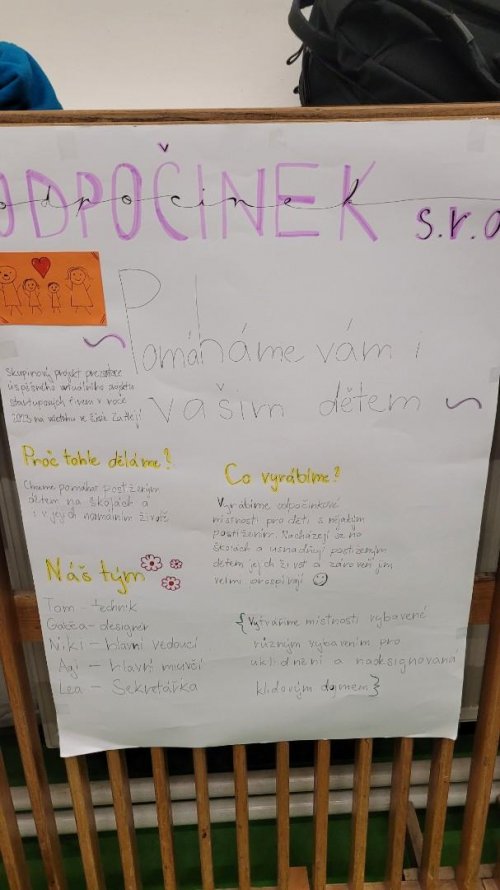 ODPOČINEK s.r.o
odpocinek
Pomáháme vám i
vašim dětem
Skupinový projekt prezentace
úspěšného virtuálního projektu
startupových firem v roce
2023 na
Proč tohle děláme?
Chceme pomáhat postiženým
dětem na školách a
i v jejich normálním životě
Co vyrábíme?
Vyrábíme odpočinkové
místnosti pro děti s nějakým
postižením. Nacházejí se na
školách a usnadňují postiženým
dětem jejich život a zároveň jim
velmi prospívají
{Vytváříme místnosti vybavené
různým vybavením pro
uklidnění a nadesignovaná
klidovým dojmem}
Náš tým
Tom - technik
designer
Niki - hlavní vedoucí
Agi - hlavní mluvčí
Lea - Sekretářka